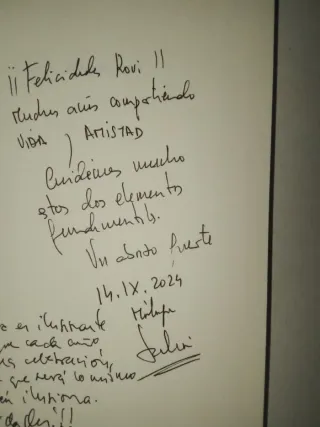 ¡¡ Felicidades Rovi !!
Muchos años compartiendo
VIDA y AMISTAD
Cuidémos mucho
estos dos elementos
fundamentales.
Un abrazo fuerte
14.IX.2024
es ilusionante
que cada año
celebración,
que será lo mismo
ilusiona.